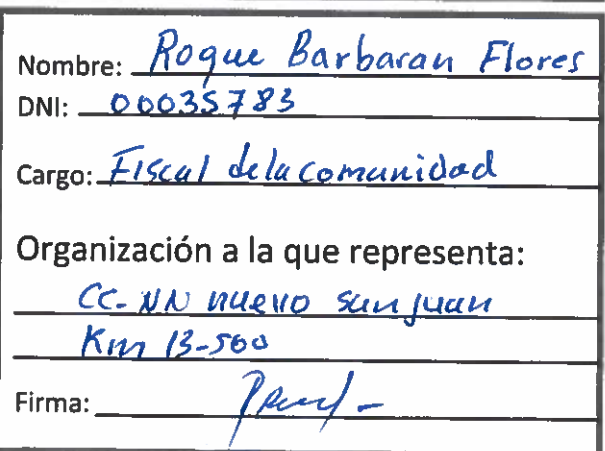 Nombre: Roque Barbaran Flores
DNI: 00035783
Cargo: Fiscal de la comunidad
Organización a la que representa:
CC-NN nuevo san juan
Km 13-500
Firma: